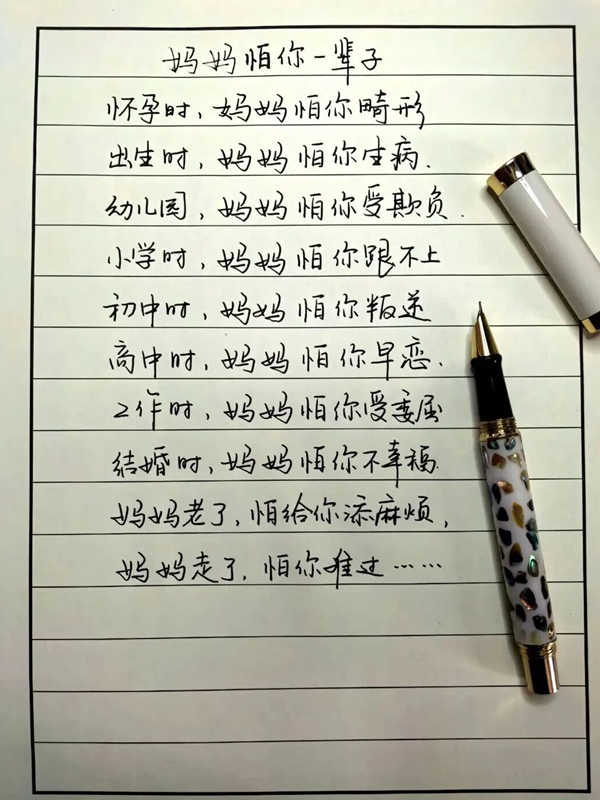 妈妈怕你一辈子
怀孕时,妈妈怕你畸形
出生时,妈妈怕你生病.
幼儿园,妈妈怕你受欺负.
小学时,妈妈怕你跟不上
初中时,妈妈怕你叛逆
高中时,妈妈怕你早恋.
工作时,妈妈怕你受委屈
结婚时,妈妈怕你不幸福.
妈妈老了,怕给你添麻烦,
妈妈走了,怕你难过……